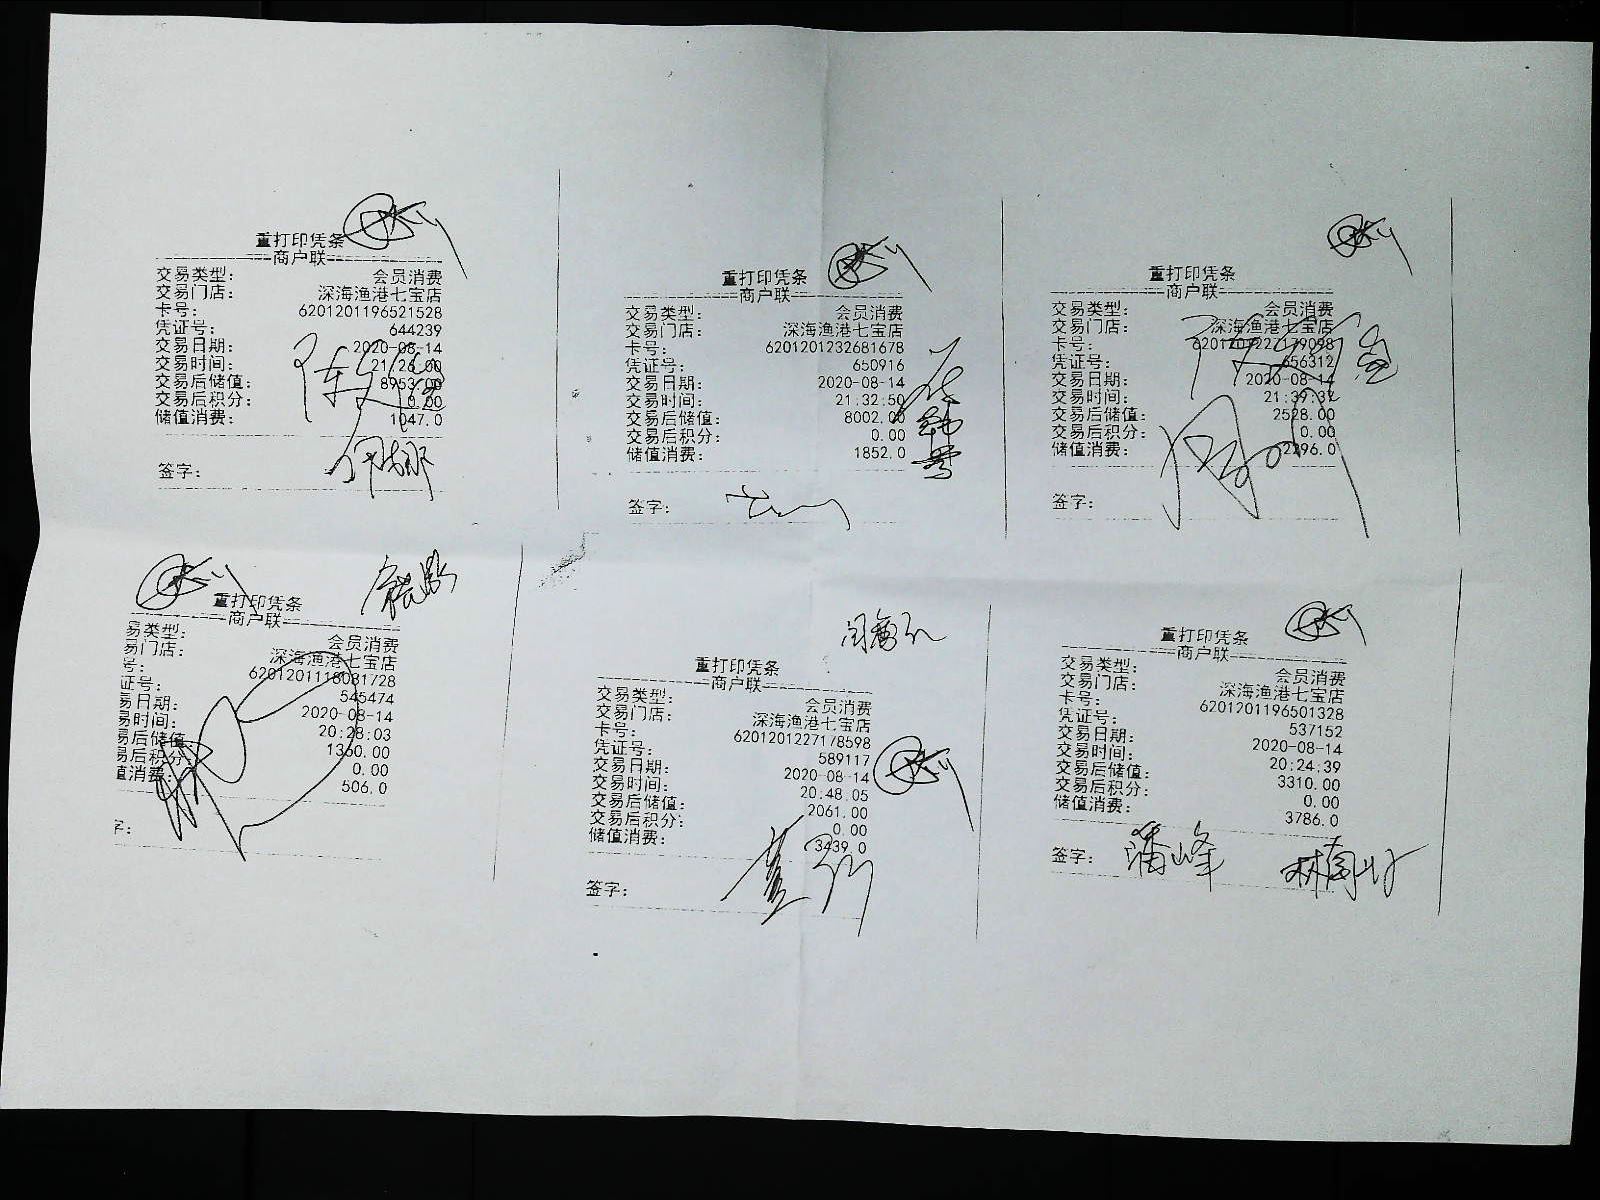 重打印凭条
商户联
交易类型: 会员消费
交易门店: 深海渔港七宝店
卡号: 6201201196521528
凭证号: 644239
交易日期: 2020-08-14
交易时间: 21:26:00
交易后储值: 8953.00
交易后积分: 0.00
储值消费: 1047.0
签字:
重打印凭条
商户联
交易类型: 会员消费
交易门店: 深海渔港七宝店
卡号: 6201201232681678
凭证号: 650916
交易日期: 2020-08-14
交易时间: 21:32:50
交易后储值: 8002.00
交易后积分: 0.00
储值消费: 1852.0
签字:
重打印凭条
商户联
交易类型: 会员消费
交易门店: 深海渔港七宝店
卡号:
凭证号: 656312
交易日期: 2020-08-14
交易时间: 21:39:37
交易后储值: 2528.00
交易后积分: 0.00
储值消费: 2296.0
签字:
重打印凭条
商户联
易类型: 会员消费
易门店: 深海渔港七宝店
号: 6201201118081728
证号: 545474
易日期: 2020-08-14
易时间: 20:28:03
易后储值: 1360.00
易后积分: 0.00
值消费: 506.0
字:
重打印凭条
商户联
交易类型: 会员消费
交易门店: 深海渔港七宝店
卡号: 6201201227178598
凭证号: 589117
交易日期: 2020-08-14
交易时间: 20:48:05
交易后储值: 2061.00
交易后积分: 0.00
储值消费: 3439.0
签字:
重打印凭条
商户联
交易类型: 会员消费
交易门店: 深海渔港七宝店
卡号: 6201201196501328
凭证号: 537152
交易日期: 2020-08-14
交易时间: 20:24:39
交易后储值: 3310.00
交易后积分: 0.00
储值消费: 3786.0
签字: 潘峰